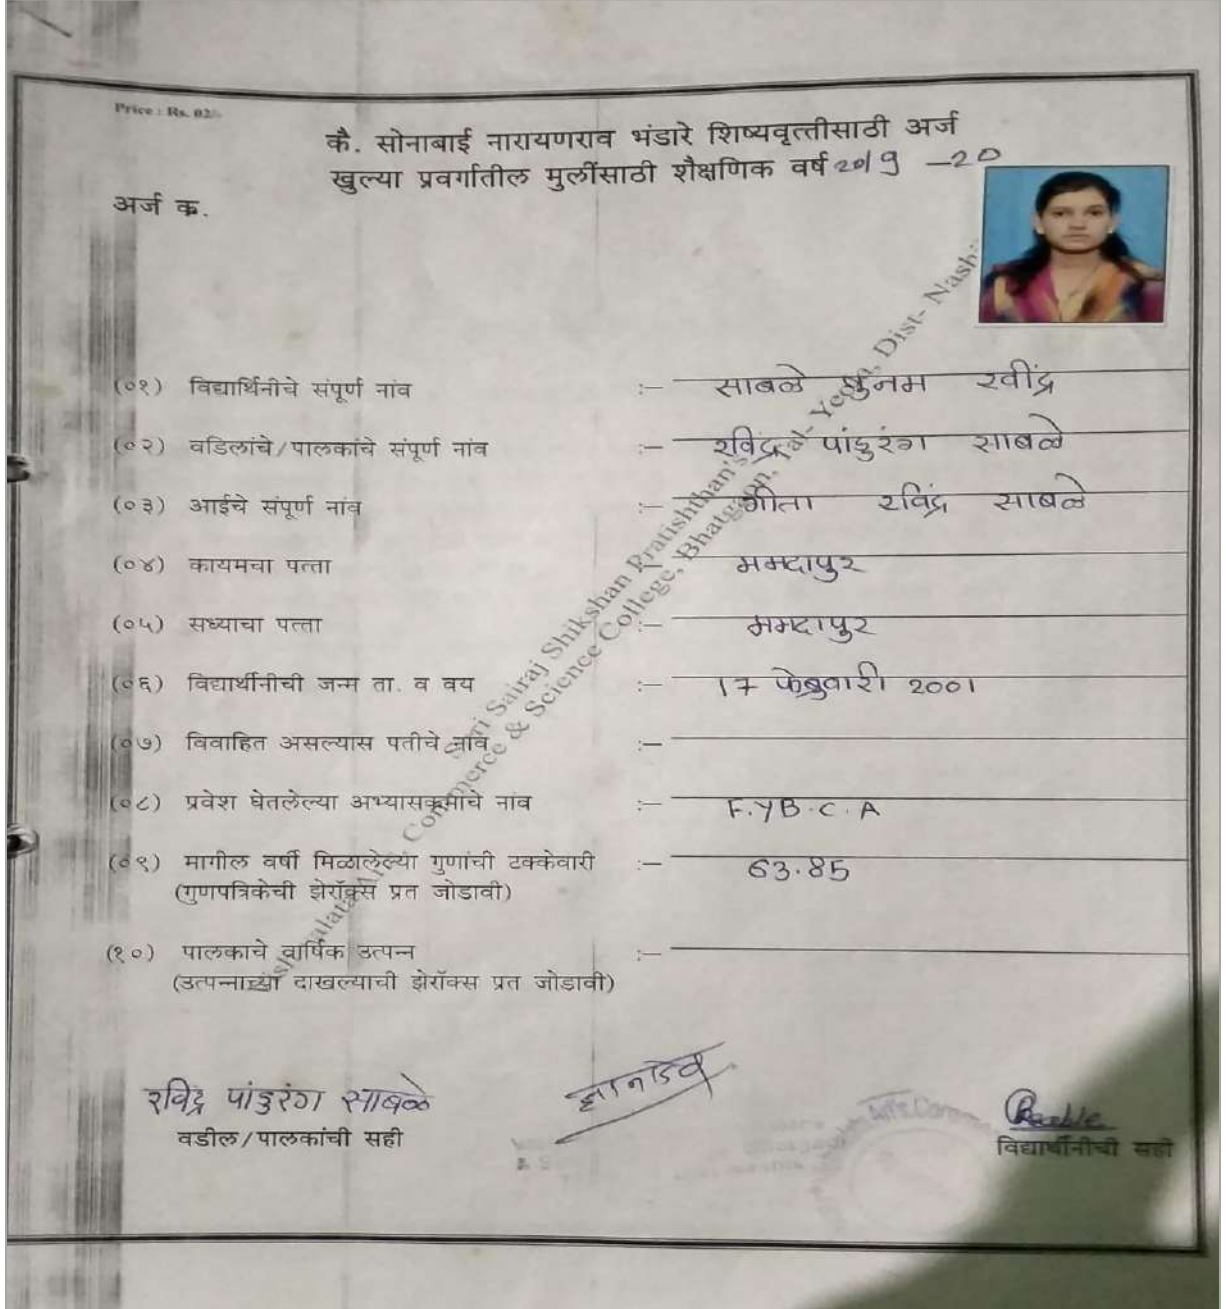 Price : Rs. 02/-
कै. सोनाबाई नारायणराव भंडारे शिष्यवृत्तीसाठी अर्ज
खुल्या प्रवर्गातील मुलींसाठी शैक्षणिक वर्ष 2019 -20
अर्ज क्र.
(०१) विद्यार्थिनीचे संपूर्ण नांव :- साबळे पुनम रवींद्र
(०२) वडिलांचे/पालकांचे संपूर्ण नांव :- रविंद्र पांडुरंग साबळे
(०३) आईचे संपूर्ण नांव :- गीता रविंद्र साबळे
(०४) कायमचा पत्ता ममदापुर
(०५) सध्याचा पत्ता :- ममदापुर
(०६) विद्यार्थीनीची जन्म ता. व वय :- 17 फेब्रुवारी 2001
(०७) विवाहित असल्यास पतीचे नांव :-
(०८) प्रवेश घेतलेल्या अभ्यासक्रमाचे नांव :- F.Y B.C.A
(०९) मागील वर्षी मिळालेल्या गुणांची टक्केवारी :- 63.85
(गुणपत्रिकेची झेरॉक्स प्रत जोडावी)
(१०) पालकाचे वार्षिक उत्पन्न :-
(उत्पन्नाच्या दाखल्याची झेरॉक्स प्रत जोडावी)
Shri Sairaj Shikshan Pratishthan's
Commerce & Science College, Bhatgaon, Dist- Nash
रविंद्र पांडुरंग साबळे
वडील/पालकांची सही
विद्यार्थीनीची सही